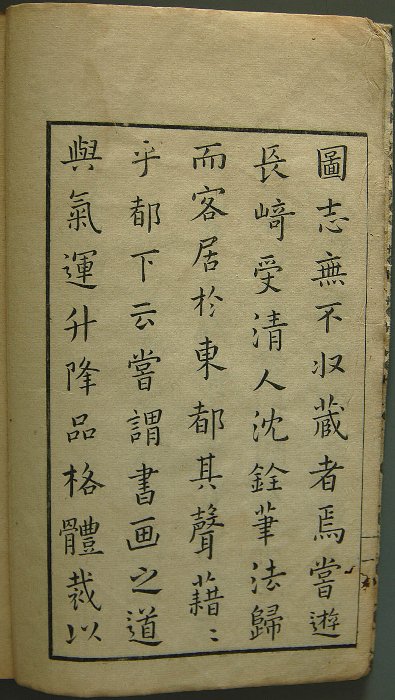 圖志無不収蔵者焉嘗遊
長﨑受清人沈銓筆法歸
而客居於東都其聲藉〻
乎都下云嘗謂書画之道
與氣運升降品格體裁以